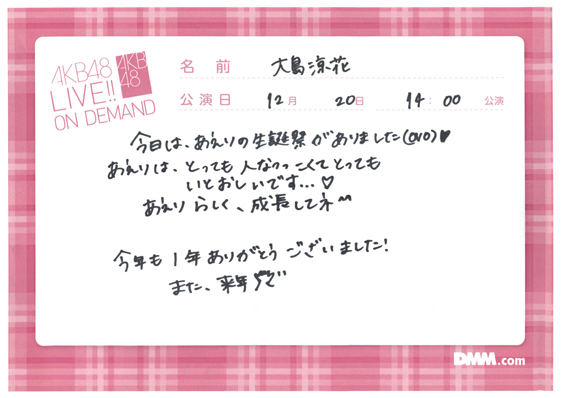 AKB48
LIVE!!
ON DEMAND
AKB
48
名 前 大島涼花
公演日 12月 20日 14:00 公演
今日は、あえりの生誕祭がありました(OVO)♥
あえりは、とっても人なつっこくてとっても
いとおしいです...♡
あえりらしく、成長してネ〜
今年も1年ありがとうございました!
また、来年
DMM.com